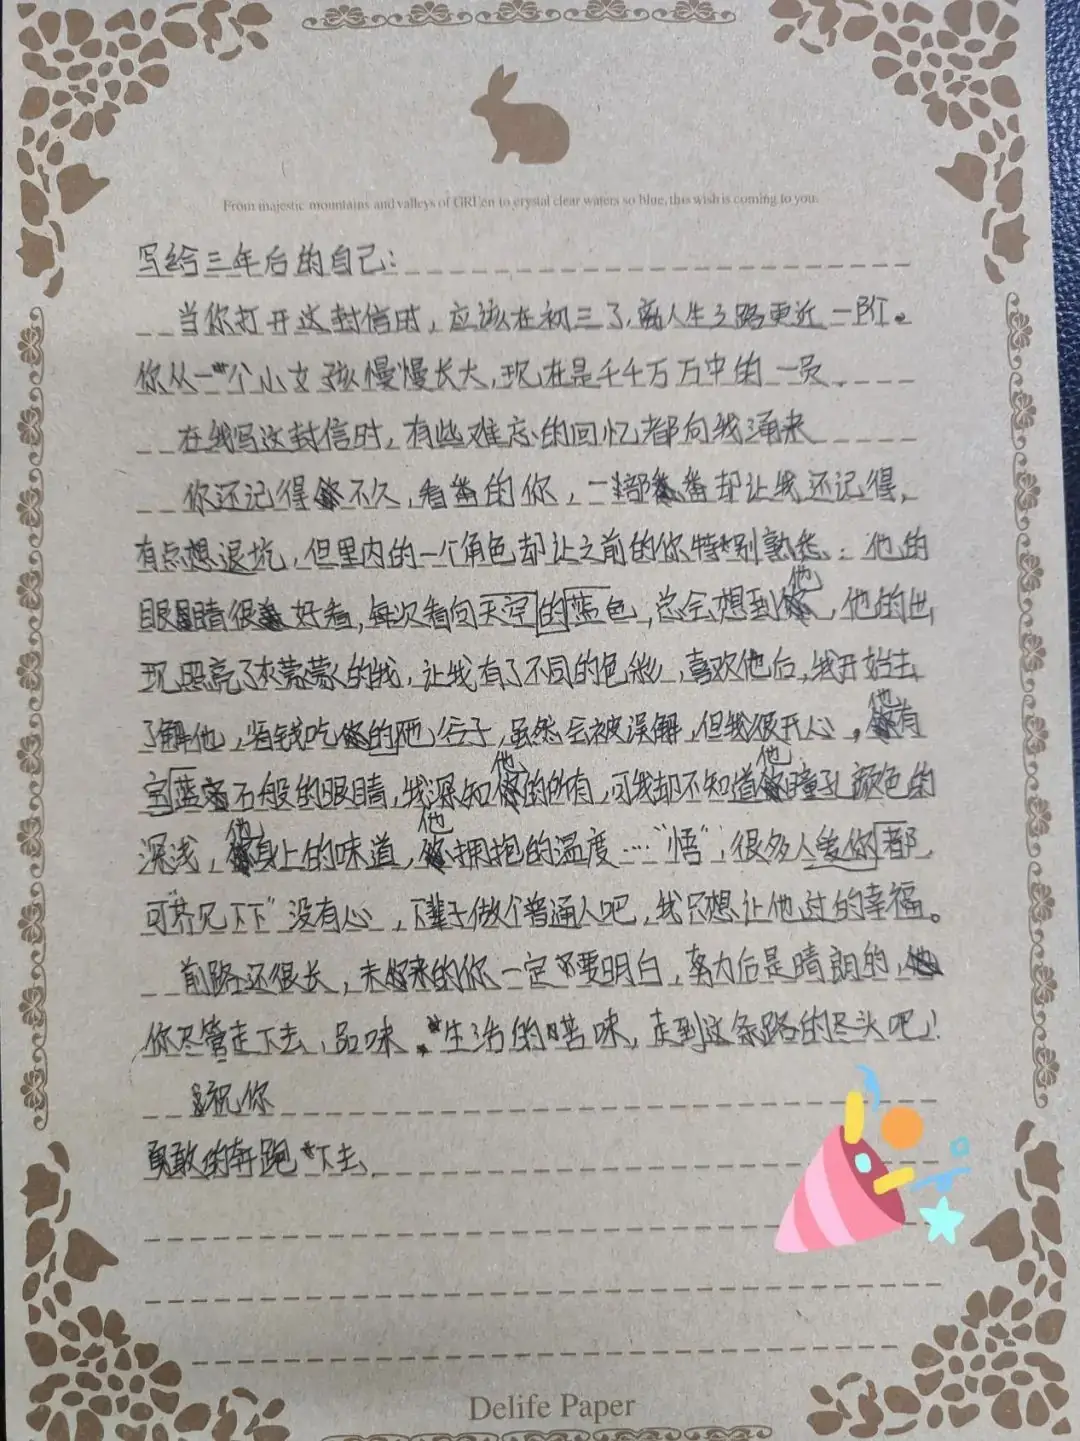 From majestic mountains and valleys of GREen to crystal clear waters so blue, this wish is coming to you.
写给三年后的自己:
当你打开这封信时,应该在初三了,离人生之路更近一阶。
你从一个小女孩慢慢长大,现在是千千万万中的一员.
在我写这封信时,有些难忘的回忆都向我涌来
你还记得不久,看番的你,一部番却让我还记得,
有点想退坑,但里内的一个角色却让之前的你特别熟悉:他的
眼睛很好看,每次看向天空的蓝色,总会想到他,他的出
现照亮了灰蒙蒙的我,让我有了不同的色彩,喜欢他后,我开始去
了解他,省钱吃他的谷子,虽然会被误解,但我很开心,他有
宝蓝石般的眼睛,我深知他的所有,可我却不知道他瞳孔颜色的
深浅,他身上的味道,他拥抱的温度…“悟”,很多人爱你都,
可“芥见下下”没有心,下辈子做个普通人吧,我只想让他过的幸福。
前路还很长,未来的你一定要明白,努力后是晴朗的,
你尽管走下去,品味生活的苦味,走到这条路的尽头吧!
祝你
勇敢的奔跑下去
Delife Paper